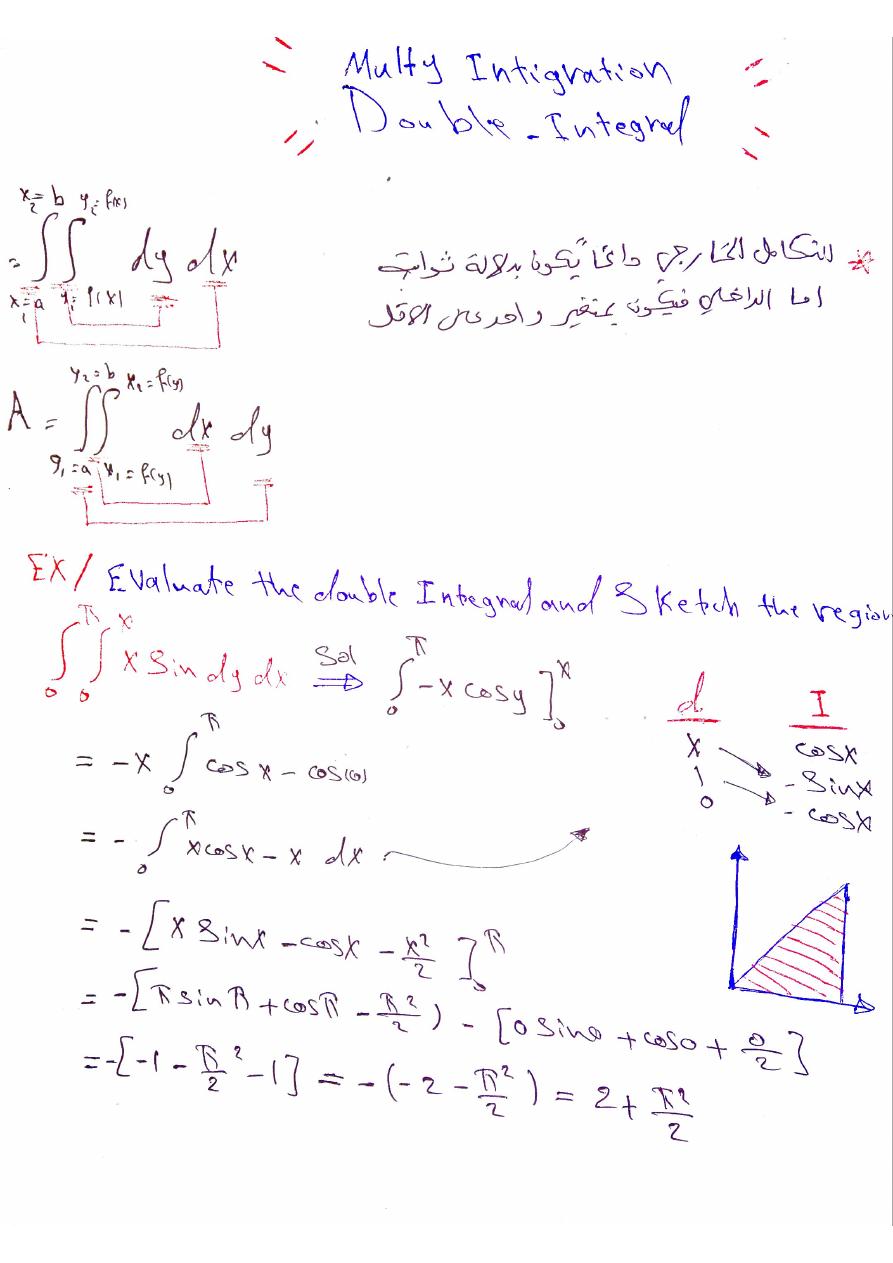 Multy Intigration
Double - Integral
* التكامل الخارجي دائماً يكون بدلالة ثوابت
اما الداخلي فيكون بمتغير واحد على الاقل
= ∫_{x₁=a}^{x₂=b} ∫_{y₁=f(x)}^{y₂=f(x)} dy dx
A = ∫_{y₁=a}^{y₂=b} ∫_{x₁=f(y)}^{x₂=f(y)} dx dy
EX/ Evaluate the double Integral and Sketch the region
∫₀^π ∫₀^x x Sin dy dx Sol ⇒ ∫₀^π -x cosy ]₀^x
= -x ∫₀^π cosx - cos(0)
= - ∫₀^π xcosx - x dx
d I
x cosx
1 - Sinx
0 - cosx
= - [x Sinx - cosx - x²/2 ]₀^π
= -[π sin π + cosπ - π²/2) - [0 sin0 + cos0 + 0/2]
= -[-1 - π²/2 - 1] = -(-2 - π²/2) = 2 + π²/2